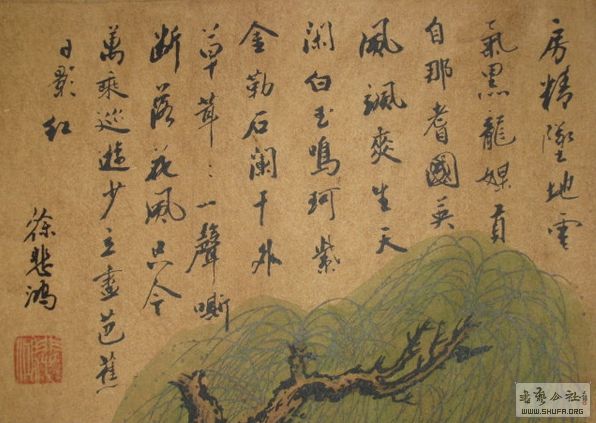 房精墜地雲
氣黑龍媒貢
自那耆國英
風颯爽生天
閑白玉鳴珂紫
金勒石闌干外
草茸〻一聲嘶
断落花風只今
萬乘巡遊少立盡芭蕉
日影紅
徐悲鴻
书艺公社
WWW.SHUFA.ORG